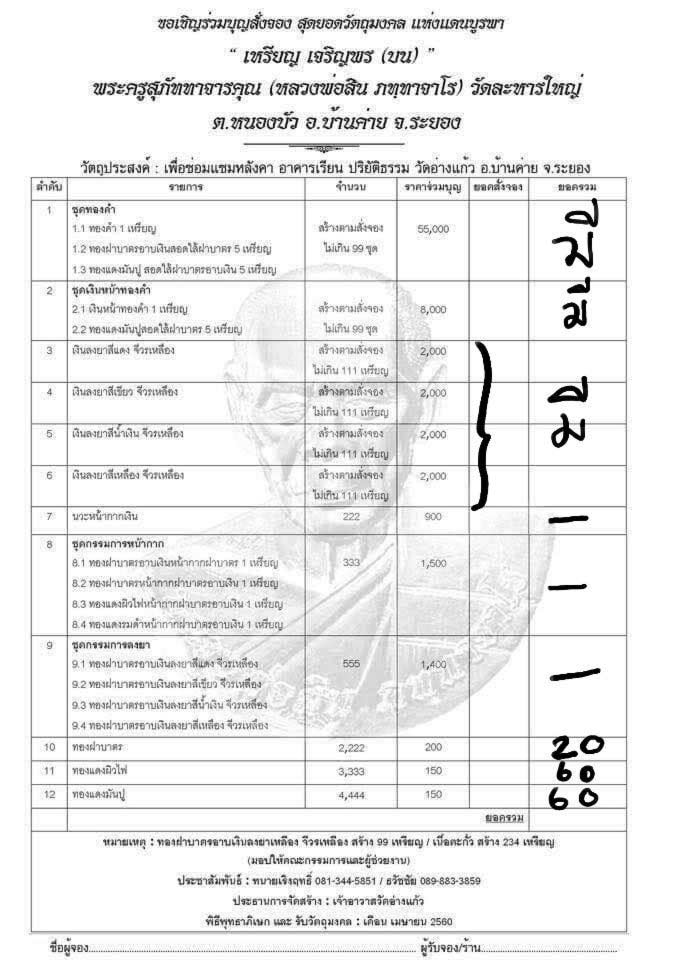 ขอเชิญร่วมบุญสั่งจอง สุดยอดวัตถุมงคล แห่งแดนบูรพา
“ เหรียญ เจริญพร (บน) ”
พระครูสุภัททาจารคุณ (หลวงพ่อสิน ภทฺทาจาโร) วัดละหารใหญ่
ต.หนองบัว อ.บ้านค่าย จ.ระยอง
วัตถุประสงค์ : เพื่อซ่อมแซมหลังคา อาคารเรียน ปริยัติธรรม วัดอ่างแก้ว อ.บ้านค่าย จ.ระยอง
ลำดับ รายการ จำนวน ราคาร่วมบุญ ยอดสั่งจอง ยอดรวม
1 ชุดทองคำ
1.1 ทองคำ 1 เหรียญ สร้างตามสั่งจอง 55,000 มี
1.2 ทองฝาบาตรอาบเงินสอดไส้ฝาบาตร 5 เหรียญ ไม่เกิน 99 ชุด
1.3 ทองแดงมันปู สอดไส้ฝาบาตรอาบเงิน 5 เหรียญ
2 ชุดเงินหน้าทองคำ
2.1 เงินหน้าทองคำ 1 เหรียญ สร้างตามสั่งจอง 8,000 มี
2.2 ทองแดงมันปูสอดไส้ฝาบาตร 5 เหรียญ ไม่เกิน 99 ชุด
3 เงินลงยาสีแดง จีวรเหลือง สร้างตามสั่งจอง 2,000
ไม่เกิน 111 เหรียญ
4 เงินลงยาสีเขียว จีวรเหลือง สร้างตามสั่งจอง 2,000 มี
ไม่เกิน 111 เหรียญ
5 เงินลงยาสีน้ำเงิน จีวรเหลือง สร้างตามสั่งจอง 2,000
ไม่เกิน 111 เหรียญ
6 เงินลงยาสีเหลือง จีวรเหลือง สร้างตามสั่งจอง 2,000
ไม่เกิน 111 เหรียญ
7 นวะหน้ากากเงิน 222 900 —
8 ชุดกรรมการหน้ากาก
8.1 ทองฝาบาตรอาบเงินหน้ากากฝาบาตร 1 เหรียญ 333 1,500
8.2 ทองฝาบาตรหน้ากากฝาบาตรอาบเงิน 1 เหรียญ —
8.3 ทองแดงผิวไฟหน้ากากฝาบาตรอาบเงิน 1 เหรียญ
8.4 ทองแดงรมดำหน้ากากฝาบาตรอาบเงิน 1 เหรียญ
9 ชุดกรรมการลงยา
9.1 ทองฝาบาตรอาบเงินลงยาสีแดง จีวรเหลือง 555 1,400 —
9.2 ทองฝาบาตรอาบเงินลงยาสีเขียว จีวรเหลือง
9.3 ทองฝาบาตรอาบเงินลงยาสีน้ำเงิน จีวรเหลือง
9.4 ทองฝาบาตรอาบเงินลงยาสีเหลือง จีวรเหลือง
10 ทองฝาบาตร 2,222 200 20
11 ทองแดงผิวไฟ 3,333 150 60
12 ทองแดงมันปู 4,444 150 60
ยอดรวม
หมายเหตุ : ทองฝาบาตรอาบเงินลงยาเหลือง จีวรเหลือง สร้าง 99 เหรียญ / เนื้อตะกั่ว สร้าง 234 เหรียญ
(มอบให้คณะกรรมการและผู้ช่วยงาน)
ประชาสัมพันธ์ : ทนายเจิงฤทธิ์ 081-344-5851 / ธวัชชัย 089-883-3859
ประธานการจัดสร้าง : เจ้าอาวาสวัดอ่างแก้ว
พิธีพุทธาภิเษก และ รับวัตถุมงคล : เดือน เมษายน 2560
ชื่อผู้จอง.................... ผู้รับจอง/ร้าน....................